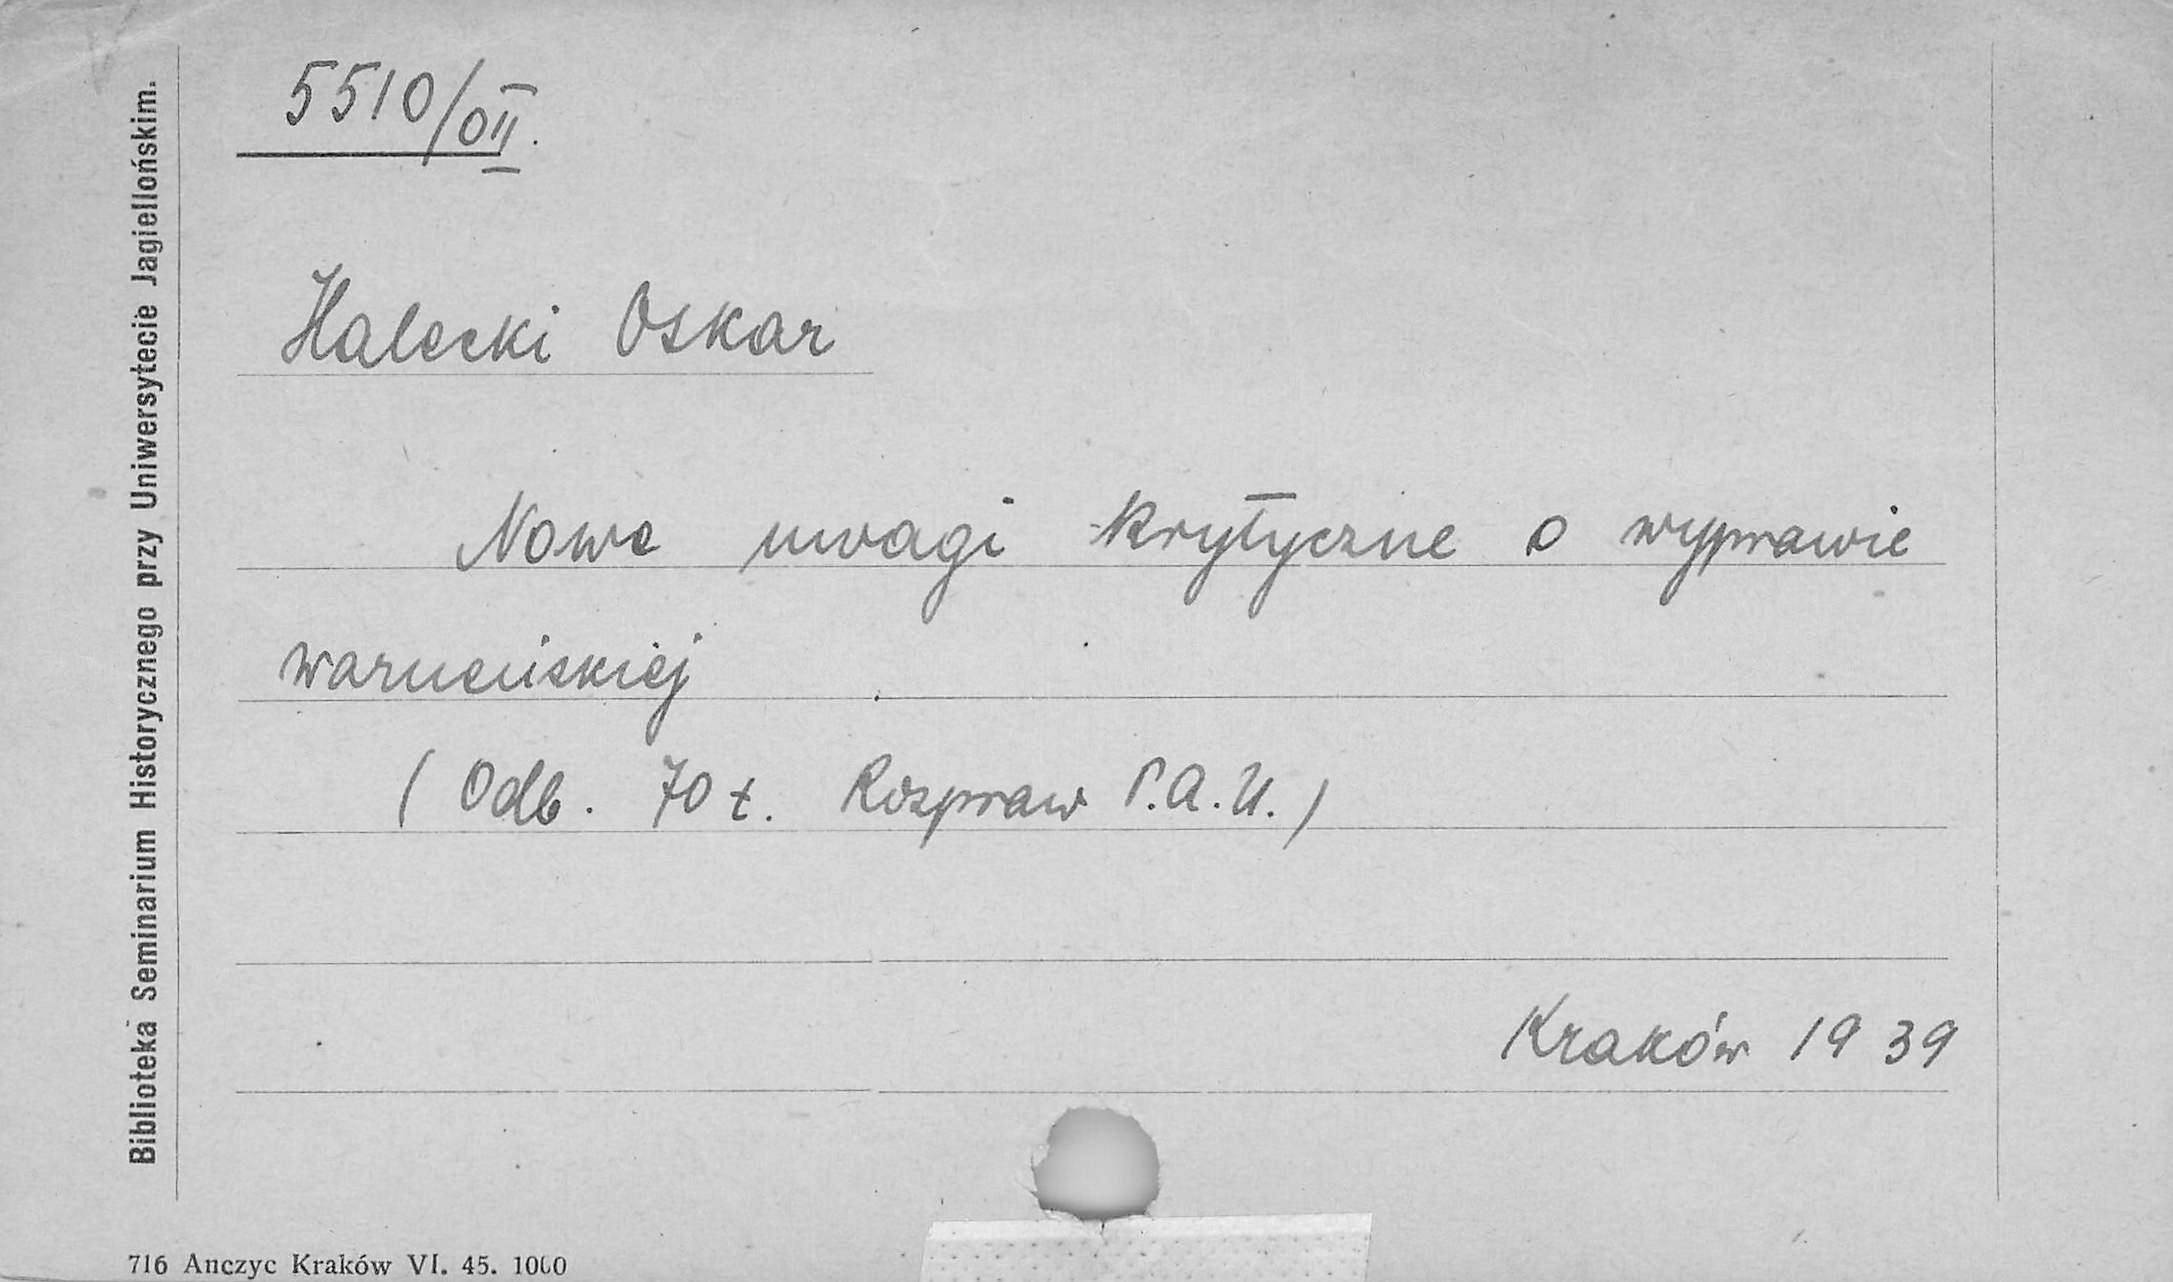 5510/0II.
Halecki Oskar
Nowe uwagi krytyczne o wyprawie
warneńskiej
( Odb. 70 t. Rozpraw P.A.U.)
Kraków 1939
Biblioteka Seminarium Historycznego przy Uniwersytecie Jagiellońskim.
716 Anczyc Kraków VI. 45. 1000